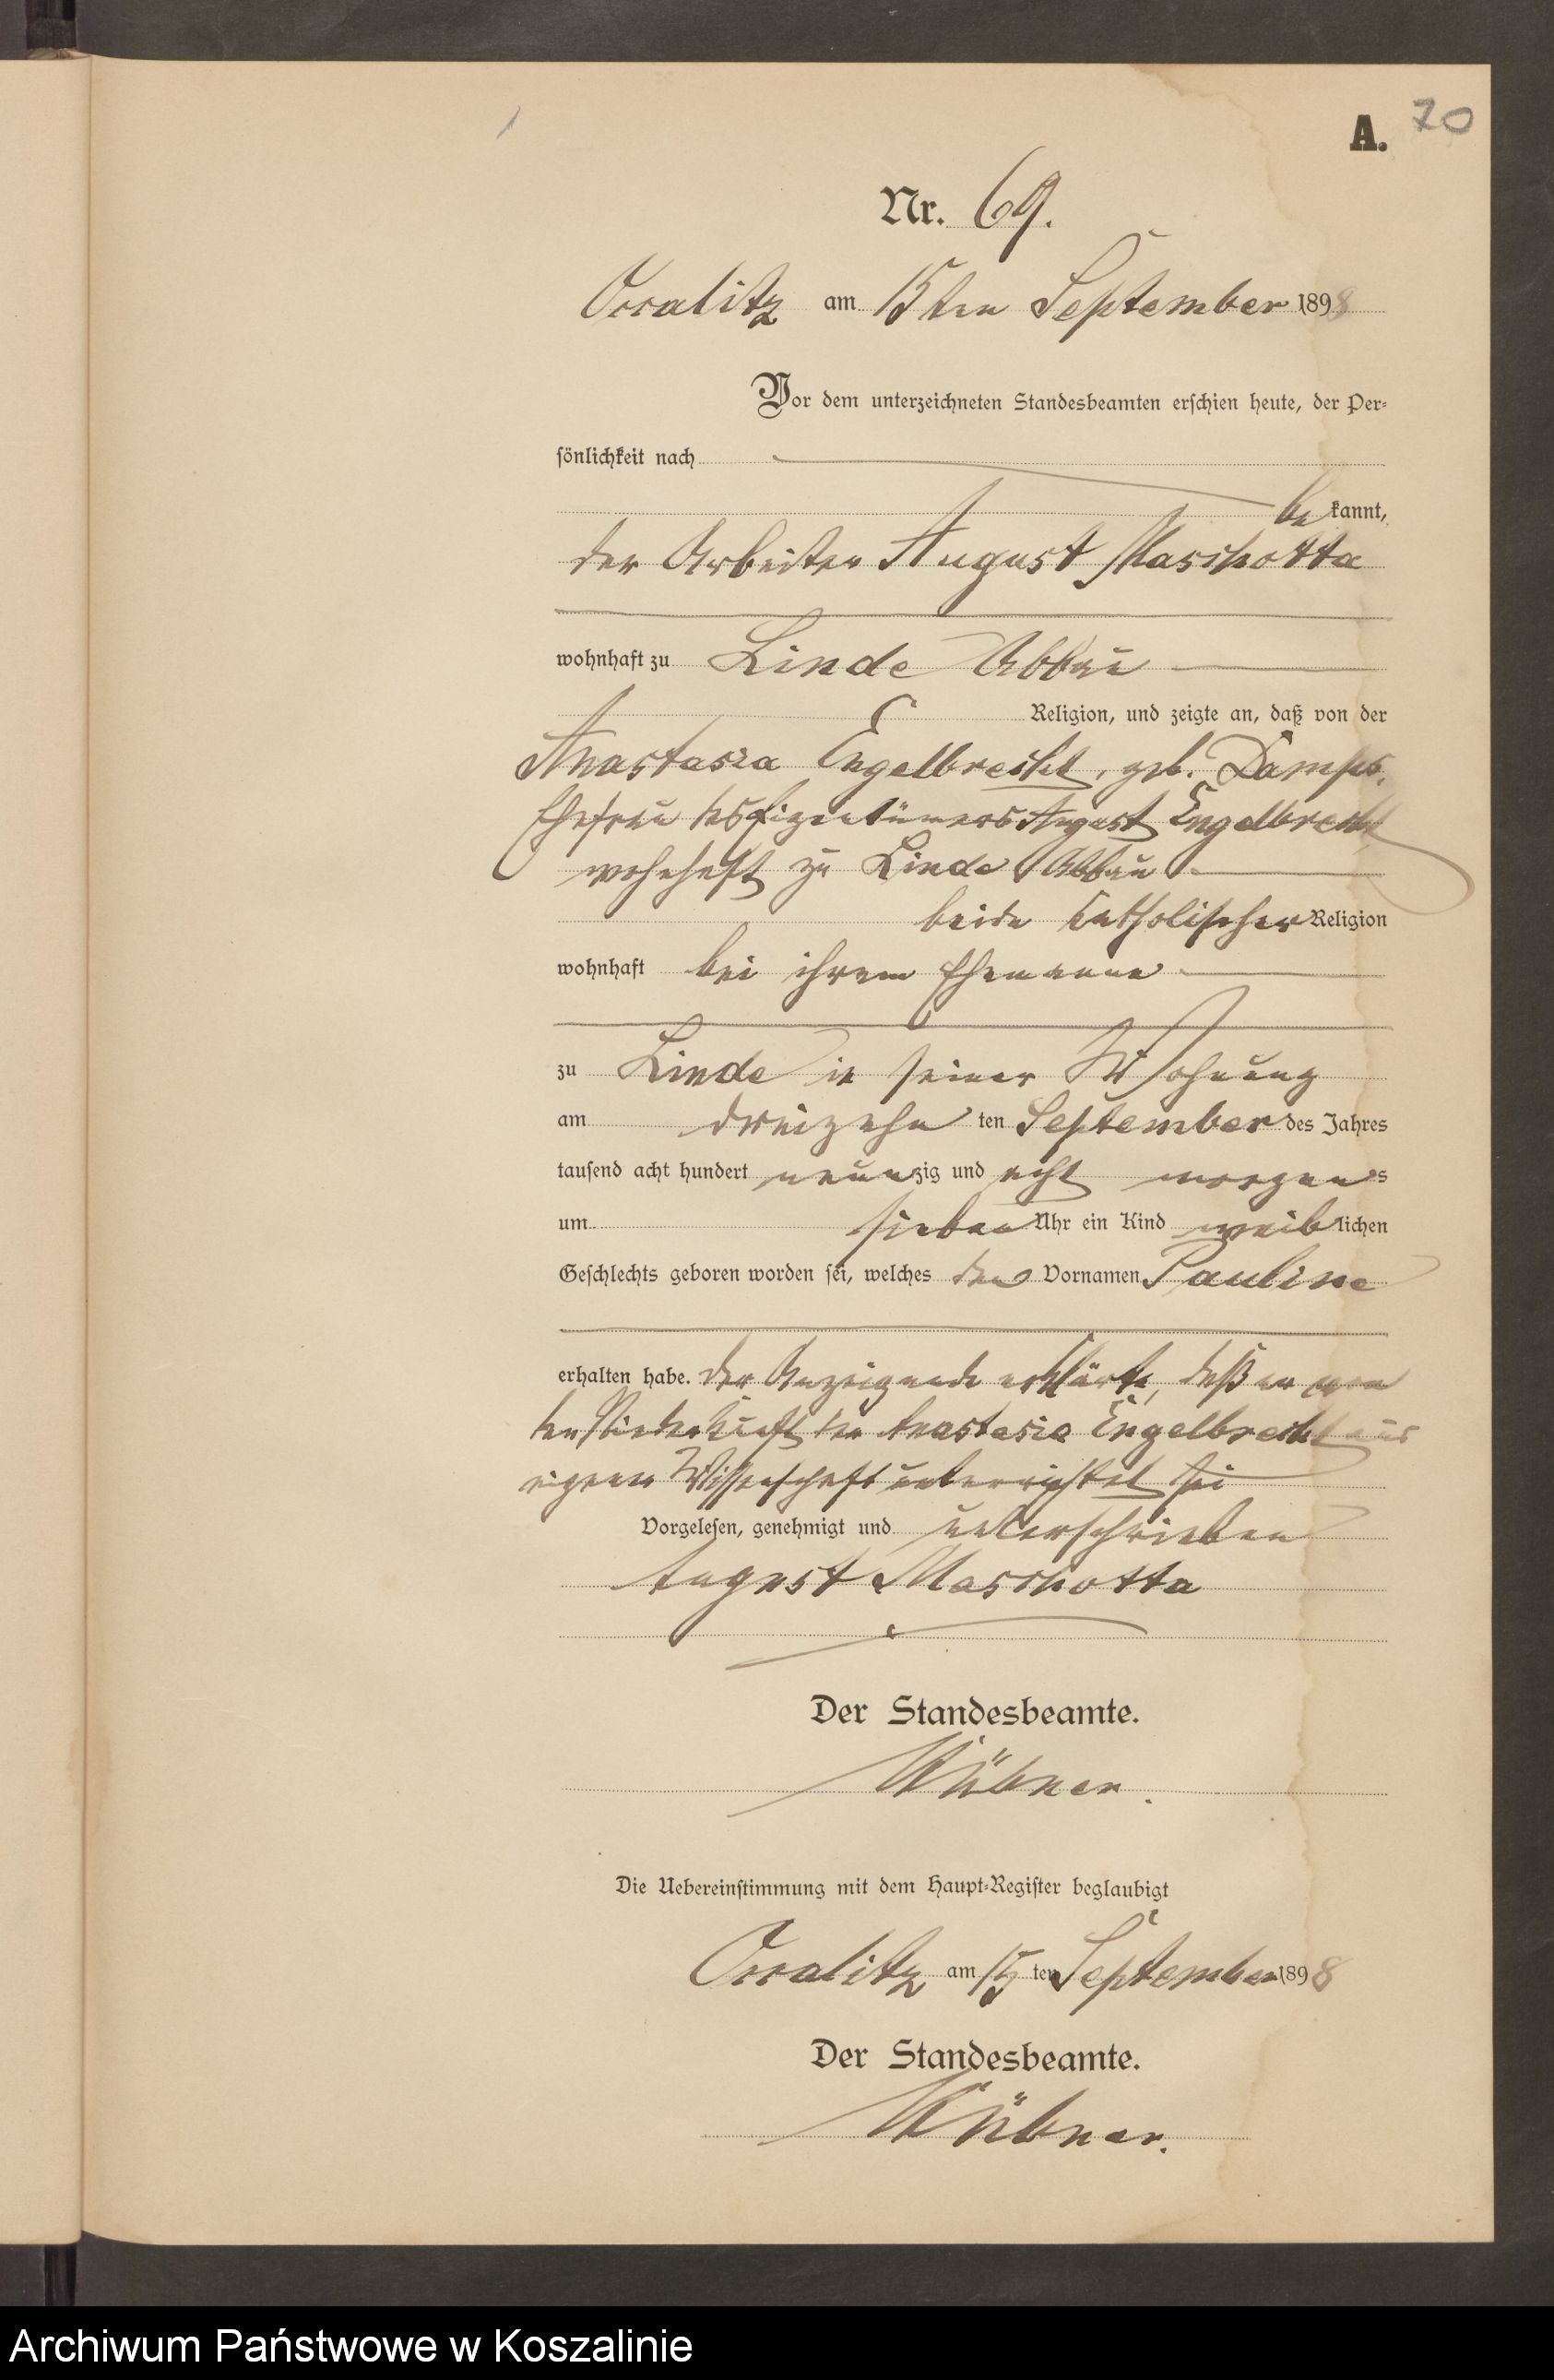 A. 70
Nr. 69.
Ossalitz am 15ten September 1898
Vor dem unterzeichneten Standesbeamten erschien heute, der Per-
sönlichkeit nach
be kannt,
der Arbeiter August Maschotta
wohnhaft zu Linde Abbau
Religion, und zeigte an, daß von der
Anastasia Engelbrecht, geb.
Ehefrau des Eigentümers August Engelbrecht
wohnhaft zu Linde Abbau
beide katholischer Religion
wohnhaft bei ihrem Ehemanne
zu Linde in seiner Wohnung
am dreizehn ten September des Jahres
tausend acht hundert neunzig und acht morgens
um sieben Uhr ein Kind weiblichen
Geschlechts geboren worden sei, welches den Vornamen Pauline
erhalten habe. Der Anzeigende erklärte, daß er von
der Niederkunft der Anastasia Engelbrecht aus
eigener Wissenschaft unterrichtet sei
Vorgelesen, genehmigt und unterschrieben
August Maschotta
Der Standesbeamte.
Kübner.
Die Uebereinstimmung mit dem Haupt-Register beglaubigt
Ossalitz am 15 ten September 1898
Der Standesbeamte.
Kübner.
Archiwum Państwowe w Koszalinie